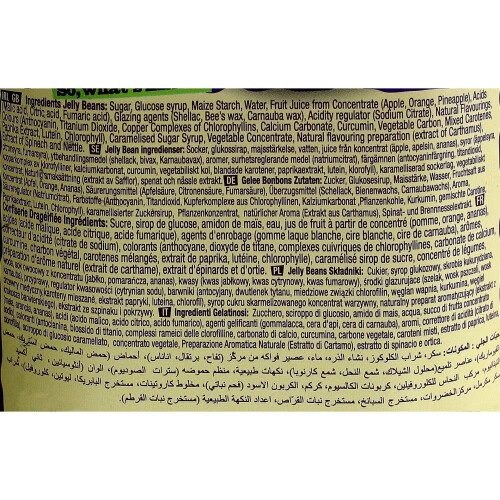 so, what's
NL GB Ingredients Jelly Beans: Sugar, Glucose syrup, Maize Starch, Water, Fruit Juice from Concentrate (Apple, Orange, Pineapple), Acids
(Malic acid, Citric acid, Fumaric acid), Glazing agents (Shellac, Bee's wax, Carnauba wax), Acidity regulator (Sodium Citrate), Natural Flavourings,
Colours (Anthocyanin, Titanium Dioxide, Copper Complexes of Chlorophyllins, Calcium Carbonate, Curcumin, Vegetable Carbon, Mixed Carotenes,
Paprika Extract, Lutein, Chlorophyll), Caramelised Sugar Syrup, Vegetable Concentrate, Natural flavouring preparation (extract of Carthamus),
Extract of Spinach and Nettle. SE Jelly Bean ingredienser: Socker, glukossirap, majsstärkelse, vatten, juice från koncentrat (äpple, apelsin, ananas), syror (äppelsyra,
citronsyra, fumarsyra), ytbehandlingsmedel (shellack, bivax, Karnaubavax), aromer, surhetsreglerande medel (natriumcitrat), färgämnen (antocyaninfärgning,
klorofylliner, kalciumkarbonat, curcumin, vegetabiliskt kol, blandade karotener, paprikaextrakt, lutein, klorofyll), karamelliserad sockerlag, vegetabiliskt
(extrakt av Safflor), spenat och nässle extrakt. DE Gelee Bonbons Zutaten: Zucker, Glukosesirup, Maisstärke, Wasser, Fruchtsaft aus
(Apfel, Orange, Ananas), Säuerungsmittel (Apfelsäure, Citronensäure, Fumarsäure), Überzugsmittel (Schellack, Bienenwachs, Carnaubawachs), Aroma,
Säureregulator (Natriumcitrat), Farbstoffe (Anthocyanin, Titandioxid, Kupferkomplexe aus Chlorophyllinen, Kalziumkarbonat, Pflanzenkohle, Kurkumin, gemischte Carotine,
Paprikaextrakt, Lutein, Chlorophyll), karamellisierter Zuckersirup, Pflanzenkonzentrat, natürlicher Aroma (Extrakt aus Carthamus), Spinat- und Brennnesselextrakt. FR
Confiserie Dragéifiée Ingrédients: Sucre, sirop de glucose, amidon de maïs, eau, jus de fruit à partir de concentré (pomme, orange, ananas),
acides (acide malique, acide citrique, acide fumarique), agents d'enrobage (gomme laque blanche, cire blanche, cire de carnauba), arômes,
correcteur d'acidité (citrate de sodium), colorants (anthocyane, dioxyde de titane, complexes cuivriques de chlorophyllines, carbonate de calcium,
curcumine, carbon végétal, carotenes mélangés, extrait de paprika, lutéine, chlorophylle), caramélisé sirop de sucre, concentré de légumes,
préparation d'arôme naturel (extrait de carthame), extrait d'épinards et d'ortie. PL Jelly Beans Składniki: Cukier, syrop glukozowy, skrobia kukurydziana,
woda, sok owocowy z koncentratu (jabłko, pomarańcza, ananas), kwasy (kwas jabłkowy, kwas cytrynowy, kwas fumarowy), środki glazurujące (szelak, wosk pszczeli, wosk
regulator kwasowości (cytrynian sodu), barwniki (antocyjany, dwutlenek tytanu, miedziowe związki chlorofilin, węglan wapnia, kurkumina, węgiel
karoteny mieszane, ekstrakt papryki, luteina, chlorofil), syrop cukru skarmelizowanego koncentrat warzywny, naturalny preparat aromatyzujący (ekstrakt z
ekstrakt ze szpinaku i pokrzywy. IT Ingredienti Gelatinosi: Zucchero, sciroppo di glucosio, amido di mais, acqua, succo di frutta da concentrato
ananas), acidi (acido malico, acido citrico, acido fumarico), agenti gelificanti (gommalacca, cera d'api, cera di carnauba), aromi, correttore di acidità (citrato di
sodio), coloranti (antocianina, biossido di titanio, complessi rameici delle clorofilline, carbonato di calcio, curcumina, carbone vegetale, caroteni misti, estratto di paprica, luteina,
clorofilla), sciroppo di glucosio caramellato, concentrato vegetale, Preparazione Aromatica Naturale (Estratto di Cartamo), estratto di spinacio e ortica.
حبيبات الجلي: المكونات: سكر، شراب الكلوكوز، نشاء الذره، ماء، عصير فواكه من مركّز (تفاح، برتقال، اناناس)، أحماض (حمض الماليك، حمض
عناصر تلميع (محلول الشيلاك، شمع النحل، شمع كارنوبا)، نكهات طبيعية، منظم حموضه (سترات الصوديوم)، الوان (أنثوسيانين، ثاني أكسيد
مركب النحاس للكلوروفيلين، كربونات الكالسيوم، كركم، الكربون الاسود (فحم نباتي)، مخلوط كاروتينات، مستخرج البابريكا، ليوتين، كلوروفيل)، شراب
سكر مكرمل، مركز الخضروات، مستخرج السبانخ، مستخرج نبات القرّاص، اعداد النكهة الطبيعية (مستخرج نبات القرطم).